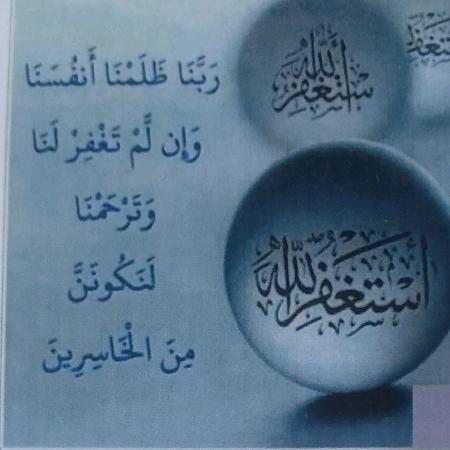 رَبَّنَا ظَلَمْنَا أَنفُسَنَا
وَإِن لَّمْ تَغْفِرْ لَنَا
وَتَرْحَمْنَا
لَنَكُونَنَّ
مِنَ الْخَاسِرِينَ
أستغفر الله
أستغفر الله